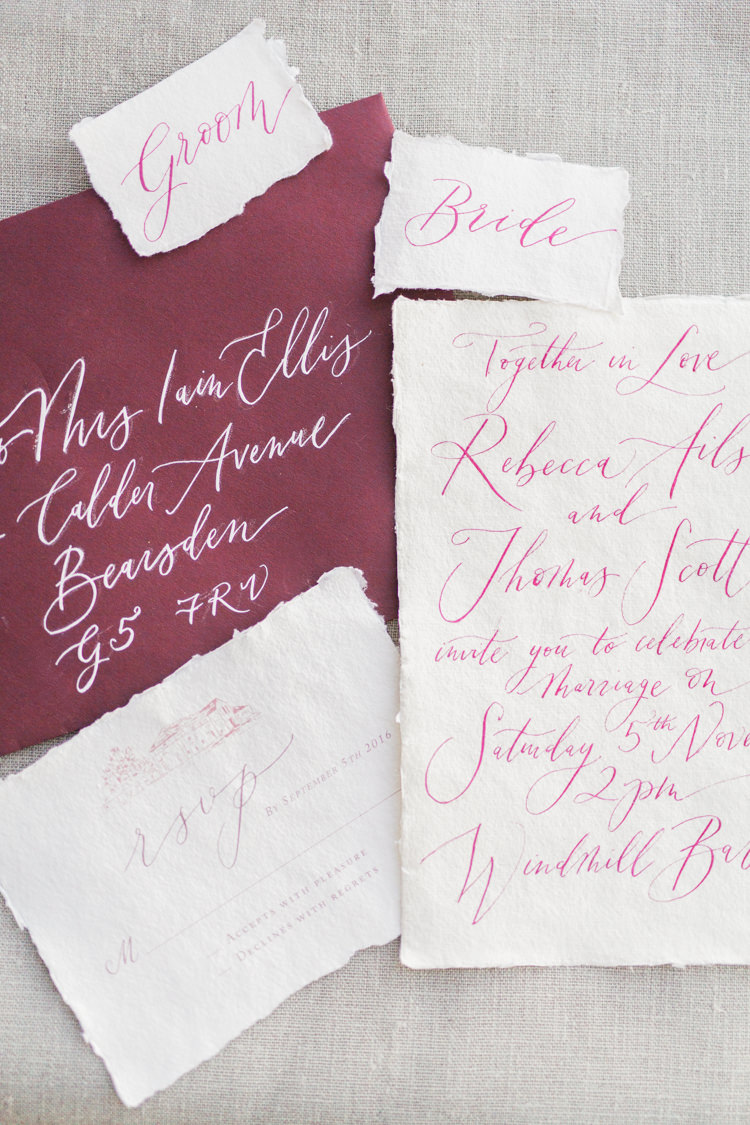 Groom
Bride
Mrs Iain Ellis
Calder Avenue
Bearsden
G5 7RW
Together in Love
Rebecca Ails
and
Thomas Scott
invite you to celebrate
marriage on
Saturday 5th Nov
2pm
Windmill Bar
rsvp
By September 5th 2016
M
Accepts with pleasure
Declines with regrets